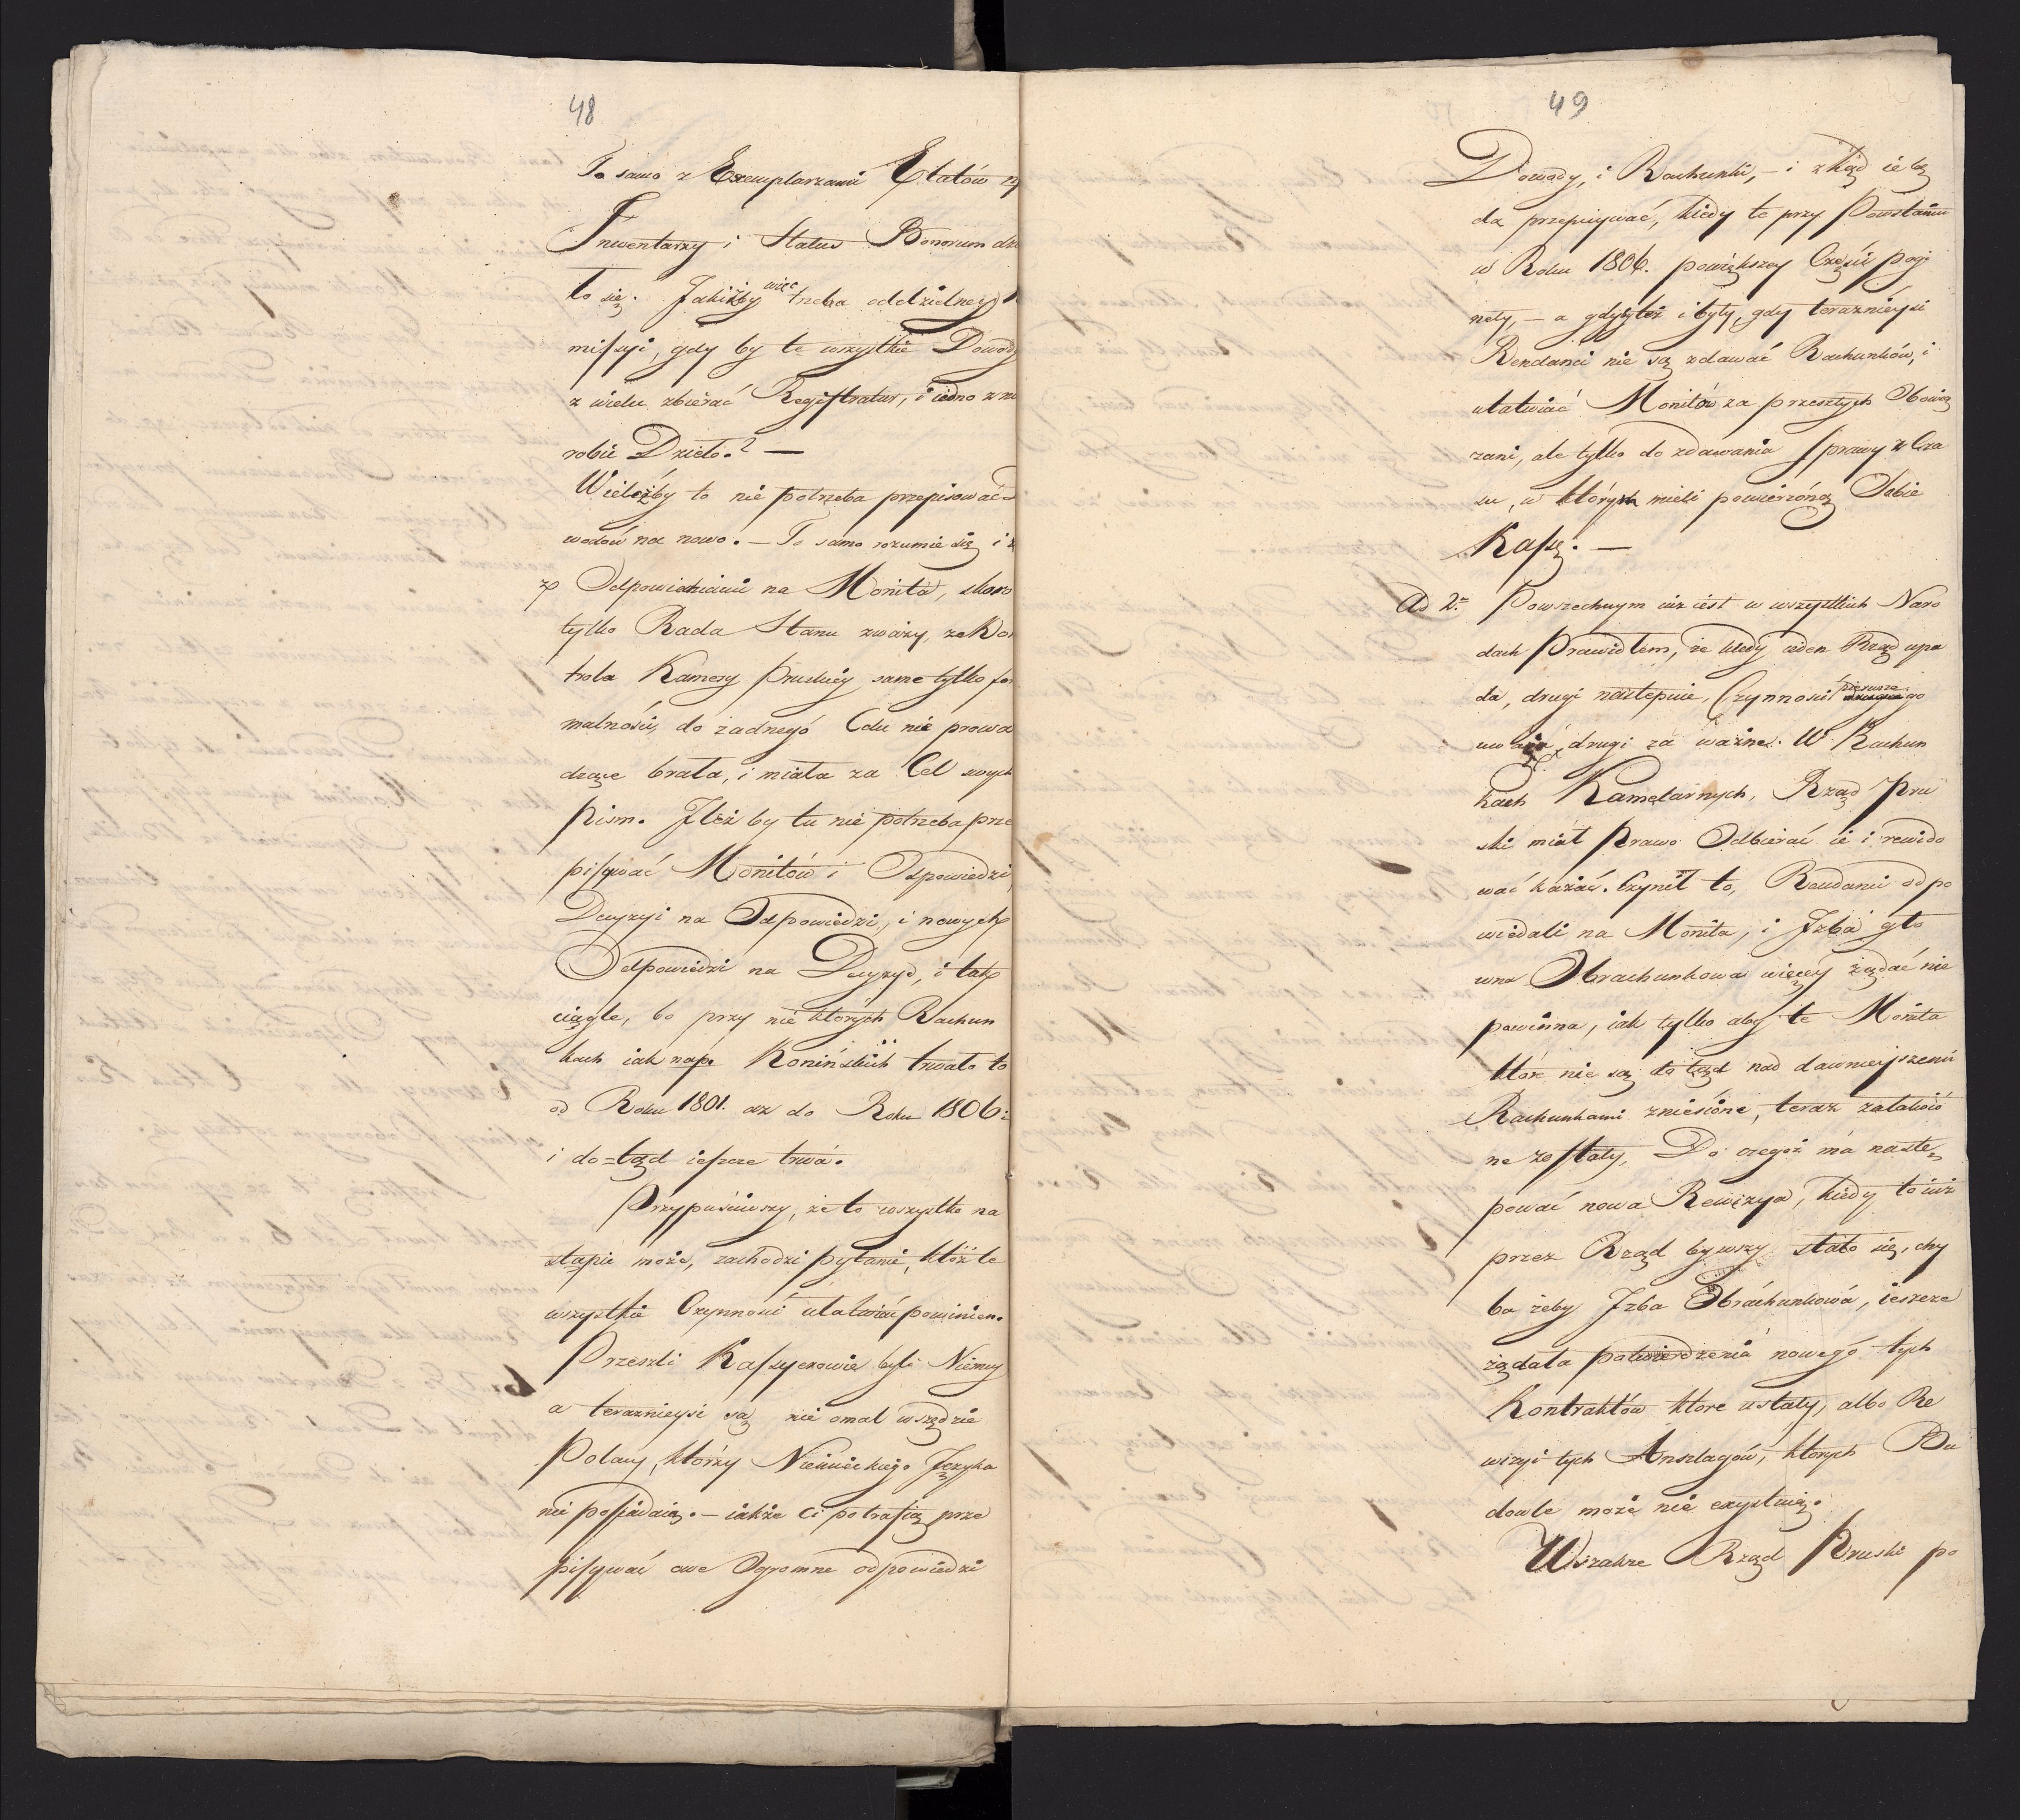 48
To samo z Exemplarzami Etatów
Inwentarzy i Status Bonorum
to się. Jakiżby więc trzeba oddzielney
missyi, gdy by te wszystkie Dowody
z wielu zbierać Registratur, i iedno z
robić Dzieło.? —
Wieleżby to nie potrzeba przepisować
wodów na nowo. — To samo rozumie się i
z Odpowiedziami na Monita, skoro
tylko Rada Stanu zważy, że Kon
trola Kamery Pruskiey same tylko for
malności, do żadnego Celu nie prowa
dzące brała, i miała za Cel swych
Pism. Ileż by tu nie potrzeba prze
pisywać Monitów i Odpowiedzi,
Decyzyi na Odpowiedzi, i nowych
Odpowiedzi na Decyzye, i tak
ciągle, bo przy niektórych Rachun
kach iak nap. Konińskich trwało to
od Roku 1801. aż do Roku 1806:
i do=tąd ieszcze trwa.
Przypuściwszy, że to wszystko na
stąpić może, zachodzi pytanie, któż te
wszystkie Czynności ułatwiać powinien.
Przeszli Kassyerowie byli Niemcy
a teraznieysi są nie omal wszędzie
Polacy, którzy Niemieckiego Języka
nie possiadaią. — iakże ci potrafią prze
pisywać owe Ogromne odpowiedzi
49
Dowody, i Rachunki, — i zkąd ie bę
dą przepisywać, kiedy te przy Powstaniu
w Roku 1806. powiększey Części pogi
nęły, — a gdyby też i były, gdy teraznieysi
Rendanci nie są zdawać Rachunków, i
ułatwiać Monitów za przeszłych Obowią
zani, ale tylko do zdawania Sprawy z Cza
su, w których mieli powierzoną Sobie
Kassę. —
Ad 2. Powszechnym iuż iest w wszystkich Naro
dach Prawidłem, że kiedy ieden Rząd upa
da, drugi następuie, Czynności pierwszego
uważa drugi za ważne. W Rachun
kach Kameralnych, Rząd Pru
ski miał Prawo Odbierać ie i rewido
wać kazać. Czynił to, Rendanci odpo
wiedali na Monita, i Izba głó
wna Obrachunkowa więcey żądać nie
powinna, iak tylko aby te Monita
które nie są do tąd nad dawnieyszemi
Rachunkami zniesione, teraz załatwio
ne zostały. Do czegoż ma nastę=
pować nowa Rewizya, kiedy to iuż
przez Rząd bywszy stało się, chy
ba żeby Izba Obrachunkowa, ieszcze
żądała potwierdzenia nowego tych
Kontraktów które ustały, albo Re
wizyi tych Anszlagów, których Bu
dowle może nie exystuią.
Wszakże Rząd Pruski po